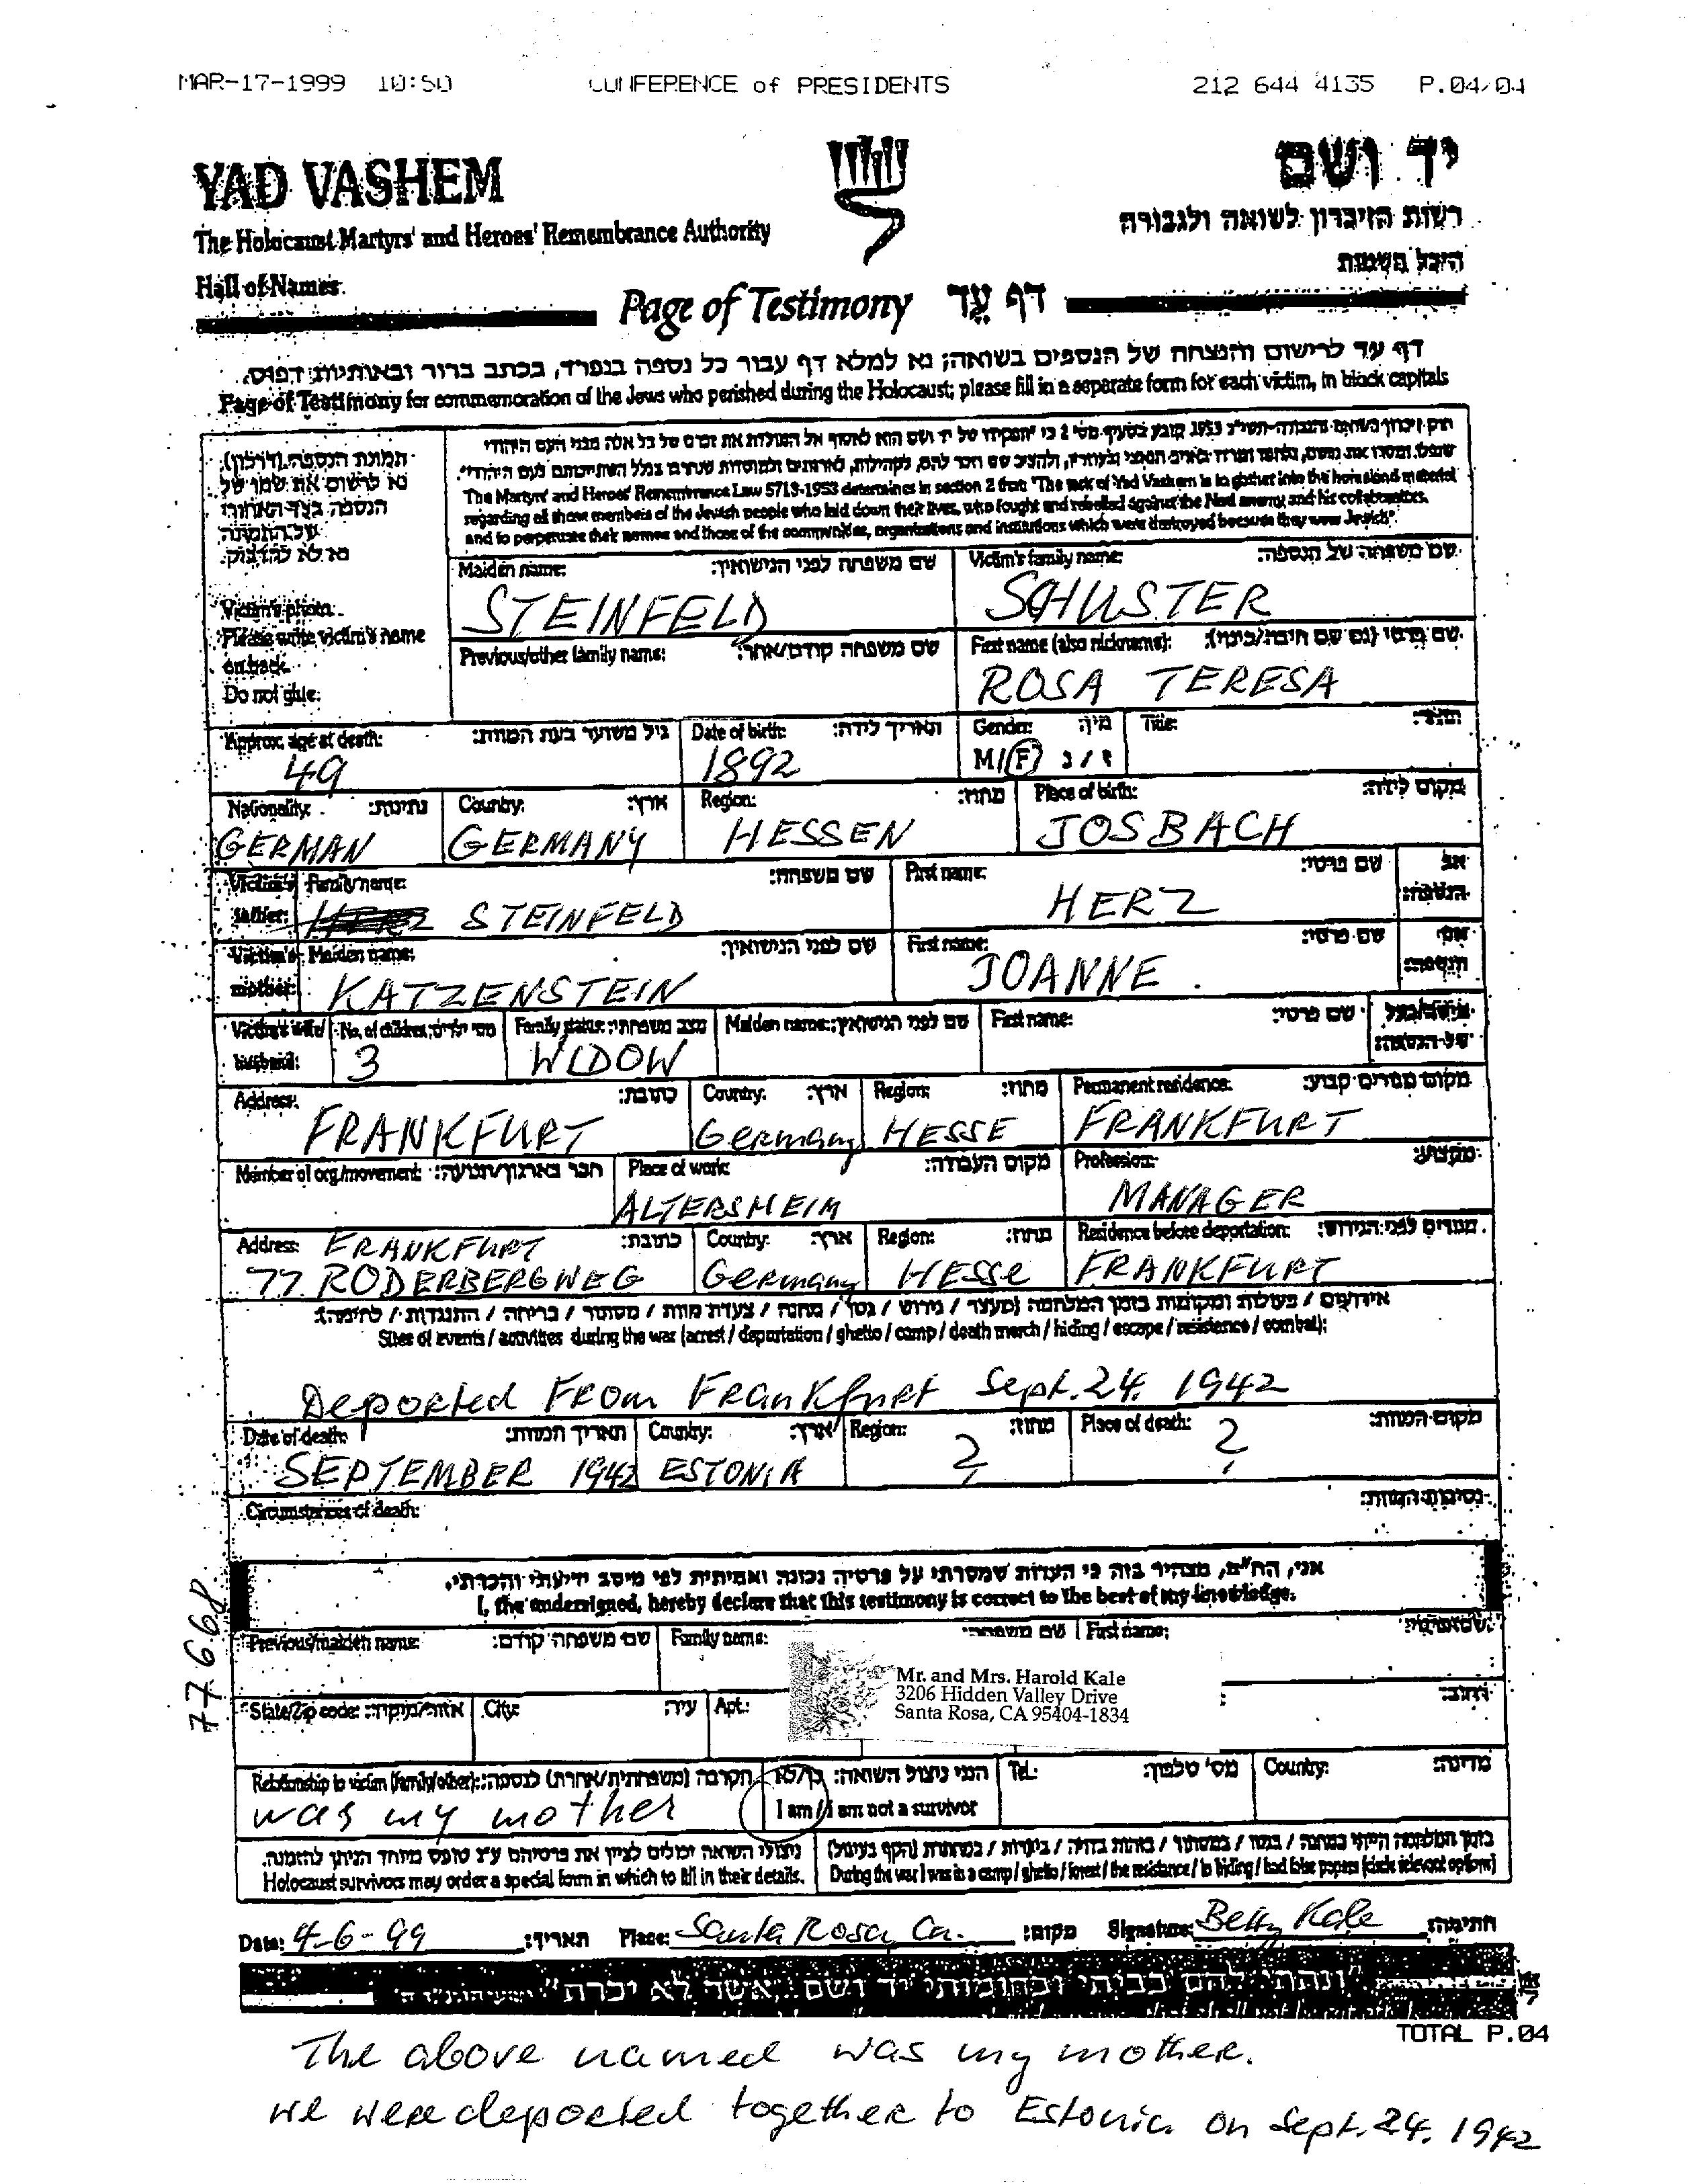 MAR-17-1999 10:50 CONFERENCE of PRESIDENTS 212 644 4135 P.04/04
YAD VASHEM יד ושם
The Holocaust Martyrs' and Heroes' Remembrance Authority רשות הזיכרון לשואה ולגבורה
Hall of Names היכל השמות
Page of Testimony דף עד
דף עד לרישום והנצחה של הנספים בשואה; נא למלא דף עבור כל נספה בנפרד, בכתב ברור ובאותיות דפוס.
Page of Testimony for commemoration of the Jews who perished during the Holocaust; please fill in a separate form for each victim, in block capitals
תמונת הנספה
נא לרשום את שמו של
הנספה בצד האחורי
של התמונה
נא לא להדביק
Victim's photo.
Please write victim's name
on back.
Do not glue.
The Martyrs' and Heroes' Remembrance Law 5713-1953 determines in section 2 that: "The task of Yad Vashem is to gather into the homeland material
regarding all those members of the Jewish people who laid down their lives, who fought and rebelled against the Nazi enemy and his collaborators,
and to perpetuate their names and those of the communities, organizations and institutions which were destroyed because they were Jewish".
Maiden name: שם משפחה לפני הנישואין: Victim's family name: שם משפחה של הנספה:
STEINFELD SCHUSTER
Previous/other family name: שם משפחה קודם/אחר: First name (also nickname): שם פרטי (גם שם חיבה/כינוי):
ROSA TERESA
Approx. age at death: גיל משוער בעת המוות: Date of birth: תאריך לידה: Gender: מין: Title: תואר:
49 1892 M/F ז / נ
Nationality: נתינות: Country: ארץ: Region: מחוז: Place of birth: מקום לידה:
GERMAN GERMANY HESSEN JOSBACH
Victim's father: Family name: שם משפחה: First name: שם פרטי: אב הנספה:
STEINFELD HERZ
Victim's mother: Maiden name: שם לפני הנישואין: First name: שם פרטי: אם הנספה:
KATZENSTEIN JOANNE.
Victim's wife/husband: No. of children: מס' ילדים: Family status: מצב משפחתי: Maiden name: שם לפני הנישואין: First name: שם פרטי: אישה/בעל של הנספה:
3 WIDOW
Address: כתובת: Country: ארץ: Region: מחוז: Permanent residence: מקום מגורים קבוע:
FRANKFURT Germany HESSE FRANKFURT
Member of org./movement: חבר בארגון/תנועה: Place of work: מקום העבודה: Profession: מקצוע:
ALTERSHEIM MANAGER
Address: כתובת: Country: ארץ: Region: מחוז: Residence before deportation: מגורים לפני הגירוש:
FRANKFURT
77. RODERBERGWEG Germany Hesse FRANKFURT
אירועים / פעולות ומקומות בזמן המלחמה (מעצר / גירוש / גטו / מחנה / צעדת מוות / מסתור / בריחה / התנגדות / לחימה):
Sites of events / activities during the war (arrest / deportation / ghetto / camp / death march / hiding / escape / resistence / combat):
Deported From Frankfurt Sept. 24. 1942
Date of death: תאריך המוות: Country: ארץ: Region: מחוז: Place of death: מקום המוות:
SEPTEMBER 1942 ESTONIA ? ?
Circumstances of death: נסיבות המוות:
אני, הח"מ, מצהיר בזה כי העדות שמסרתי על פרטיה נכונה ואמיתית לפי מיטב ידיעתי והכרתי.
I, the undersigned, hereby declare that this testimony is correct to the best of my knowledge.
77668
Previous/maiden name: שם משפחה קודם: Family name: שם משפחה: First name: שם פרטי:
Mr. and Mrs. Harold Kale
3206 Hidden Valley Drive
Santa Rosa, CA 95404-1834
State/Zip code: אזור/מיקוד: City: עיר: Apt.: רחוב:
Relationship to victim (family/other): הקרבה (משפחתית/אחרת) לנספה: הנני ניצול השואה: כן/לא Tel.: מס' טלפון: Country: מדינה:
was my mother I am / I am not a survivor
ניצולי השואה יכולים לציין את פרטיהם ע"ג טופס מיוחד הניתן להזמנה.
Holocaust survivors may order a special form in which to fill in their details.
During the war I was in a camp / ghetto / forest / the resistance / in hiding / had false papers (circle relevant option)
Date: 4-6-99 תאריך: Place: Santa Rosa Ca. מקום: Signature: Betty Kale חתימה:
"ונתתי להם בביתי ובחומותי יד ושם ... אשר לא יכרת"
TOTAL P.04
The above named was my mother.
we were deported together to Estonia on Sept. 24. 1942